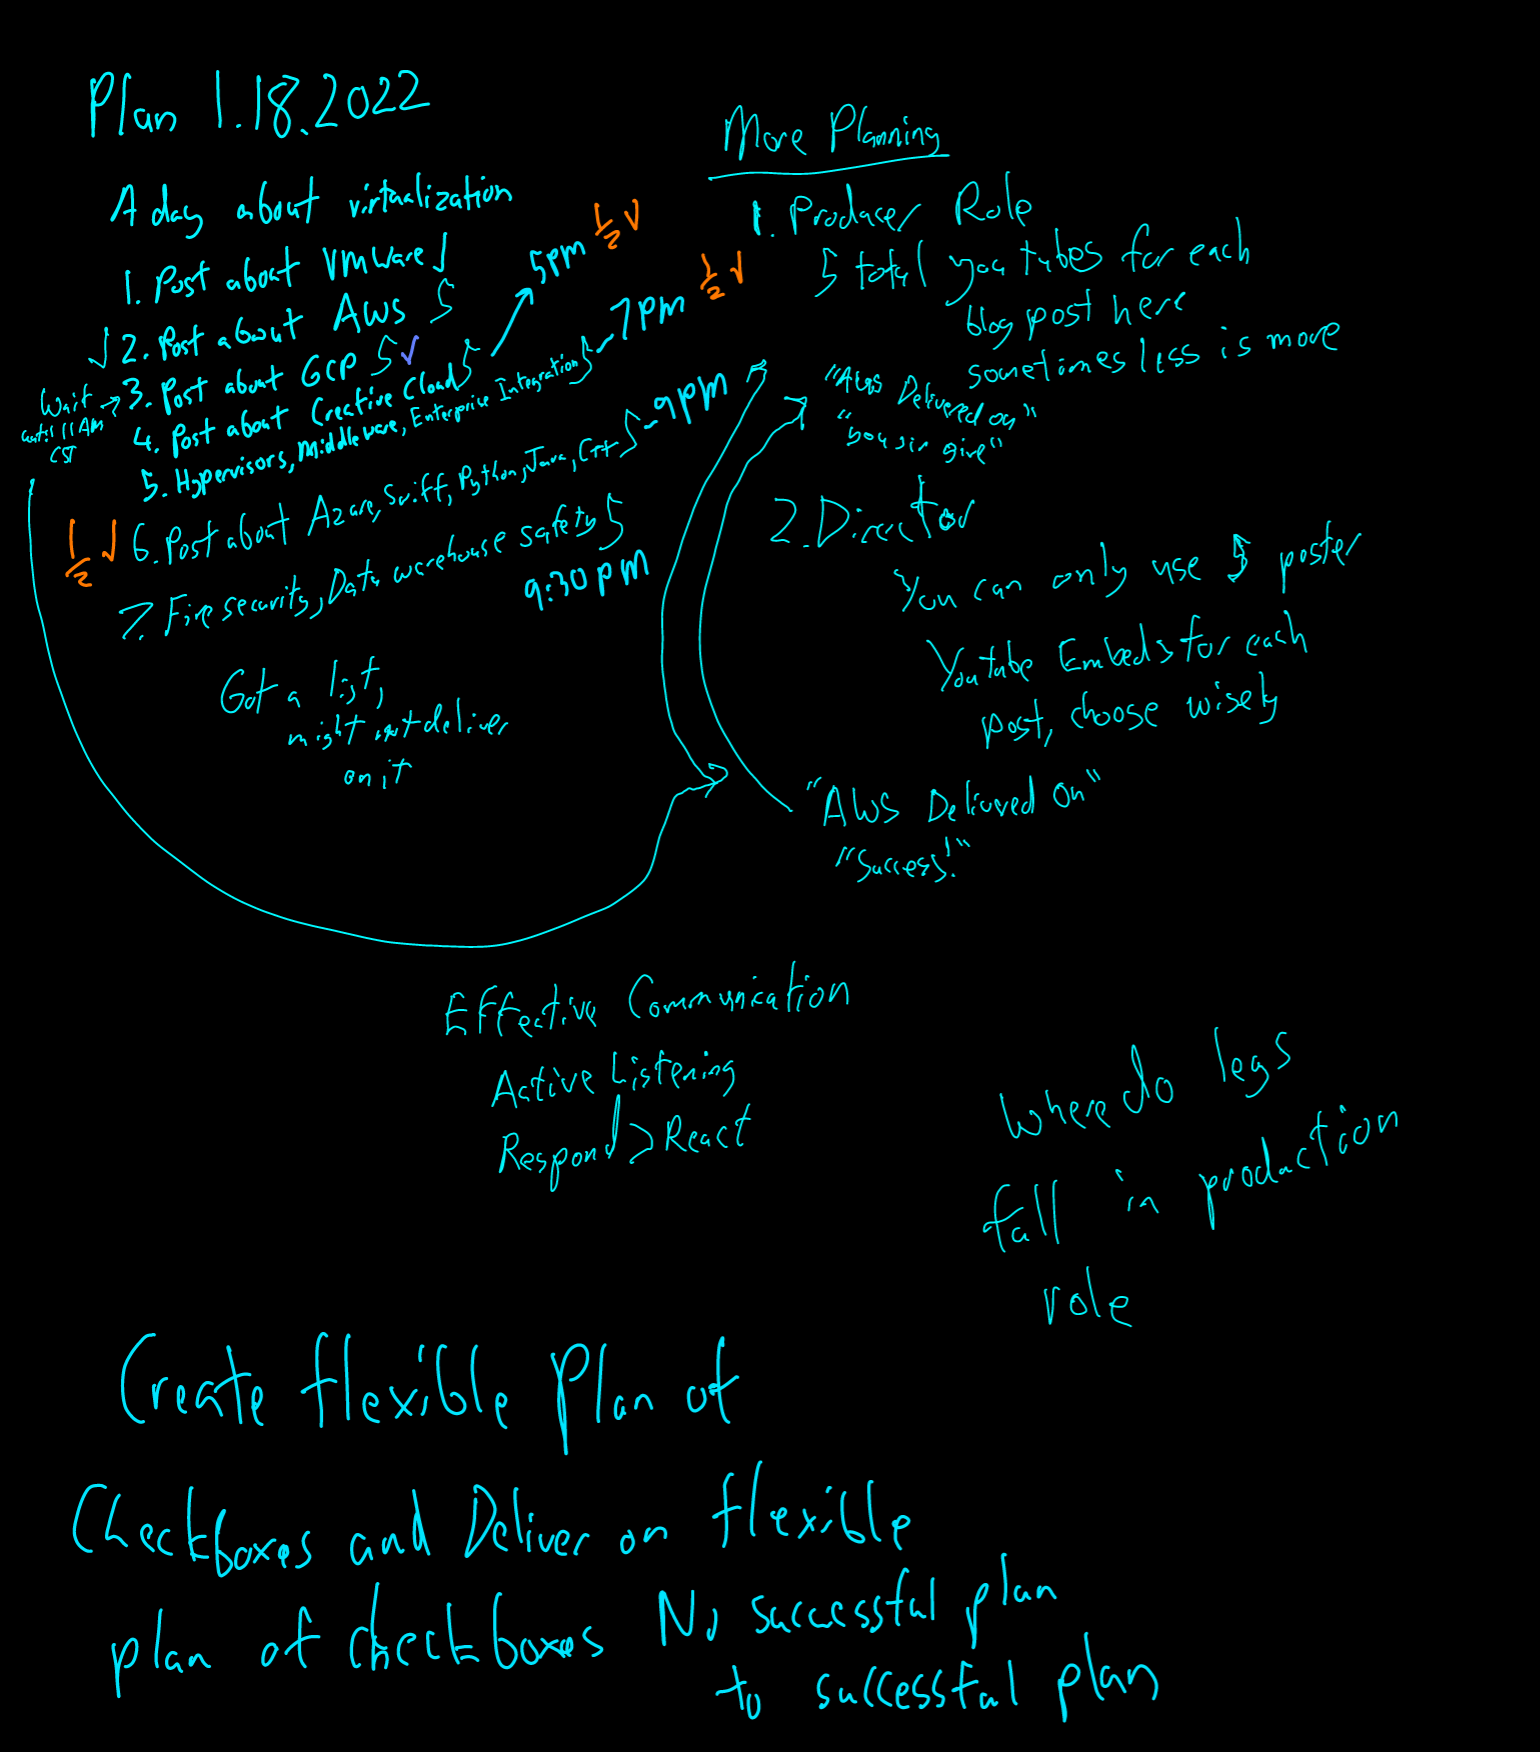 Plan 1.18.2022
A day about virtualization
1. Post about VMWare √
√ 2. Post about AWS 5
3. Post about GCP 5 √
Wait until 11 AM CST
4. Post about Creative Cloud 5
5pm ½ √
5. Hypervisors, Middleware, Enterprise Integration 5 - 7pm ½ √
½ √ 6. Post about Azure, Swift, Python, Java, C++ 5 - 9pm
7. Fire security, Data warehouse safety 5
9:30pm
Got a list,
might not deliver
on it
More Planning
1. Producer Role
5 total youtubes for each
blog post here
sometimes less is more
"AWS Delivered on"
"you sir give"
2. Director
You can only use 5 poster
Youtube Embeds for each
post, choose wisely
"AWS Delivered On"
"Success!"
Effective Communication
Active Listening
Respond > React
Where do legs
fall in production
role
Create flexible Plan of
Checkboxes and Deliver on flexible
plan of checkboxes
No successful plan
to successful plan